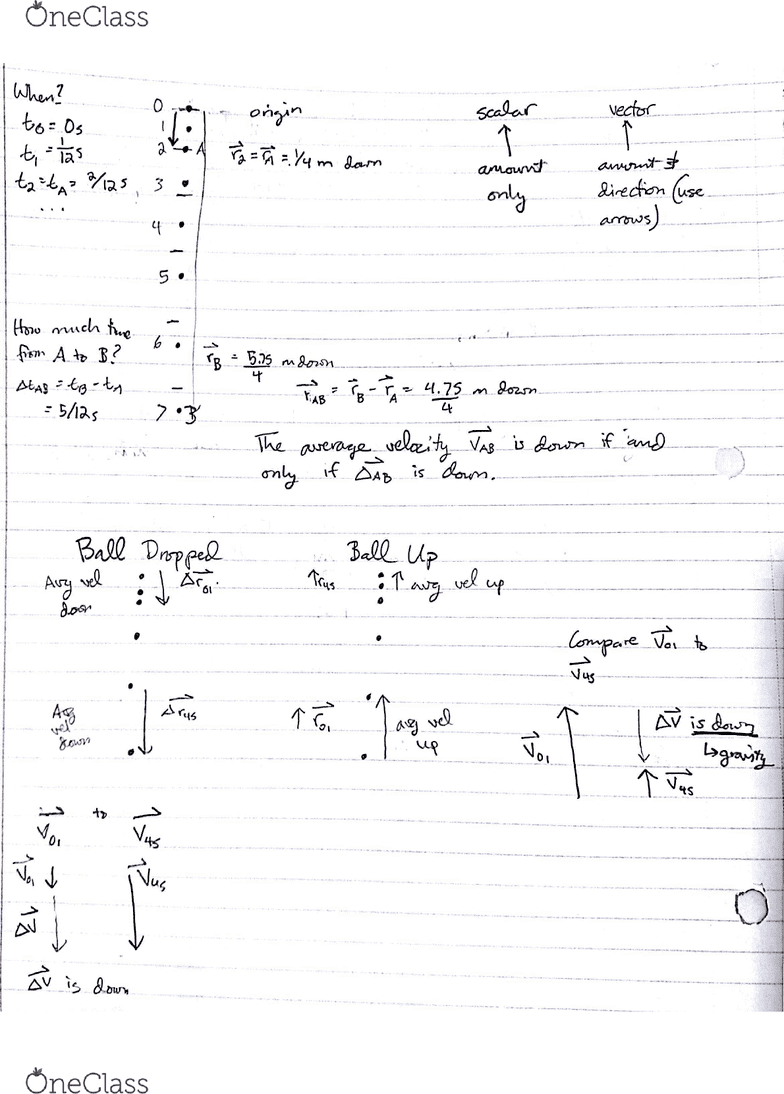 OneClass
When?
t0 = 0s
t1 = 1/12 s
t2 = tA = 2/12 s
...
0
1
2 A
3
4
5
6
7 B
origin
r⃗2 = r⃗A = 1/4 m down
scalar
↑
amount
only
vector
↑
amount &
direction (use
arrows)
How much time
from A to B?
ΔtAB = tB - tA
= 5/12 s
r⃗B = 5.75/4 m down
r⃗AB = r⃗B - r⃗A = 4.75/4 m down
The average velocity V⃗AB is down if and
only if Δ⃗AB is down.
Ball Dropped
Avg vel
down
Δr⃗01
Avg
vel
down
Δr⃗45
Ball Up
↑r45
↑ avg vel up
↑ r⃗01
avg vel
up
Compare V⃗01 to
V⃗45
V⃗01
ΔV⃗ is down
↳gravity
V⃗45
V⃗01 to V⃗45
V⃗01 ↓
V⃗45
ΔV⃗
ΔV⃗ is down
OneClass